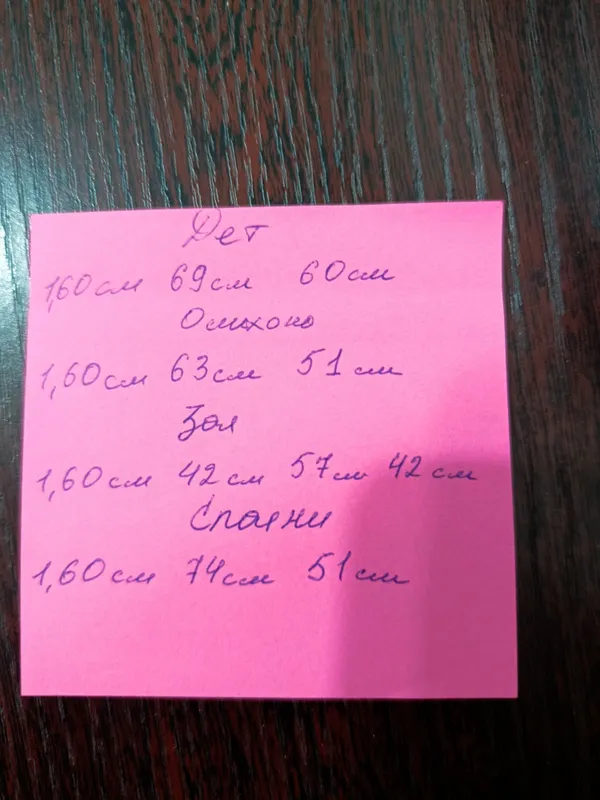 Дет
1,60см 69см 60см
Ошхона
1,60см 63см 51см
Зал
1,60см 42см 57см 42см
Спални
1,60см 74см 51см